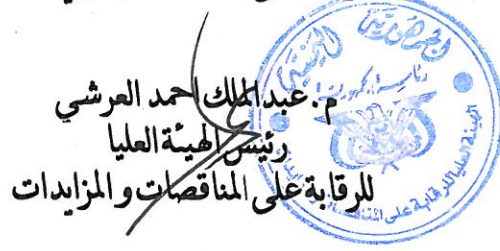 م. عبدالملك احمد العرشي
رئيس الهيئة العليا
للرقابة على المناقصات و المزايدات
الجمهورية اليمنية
رئاسة الجمهورية
الهيئة العليا للرقابة على المناقصات